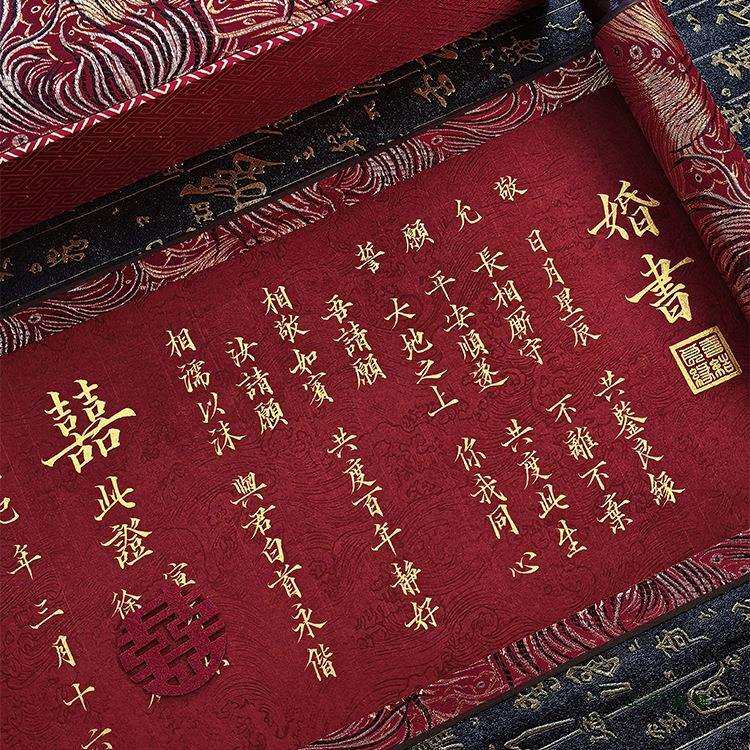 婚書
敬日月星辰 共鑒良緣
允長相廝守 不離不棄
願平安順遂 共度此生
誓大地之上 你我同心
吾請願 共度百年靜好
相敬如賓
汝請願 與君白首永偕
相濡以沫
宣
囍此證 徐
巳年三月十六